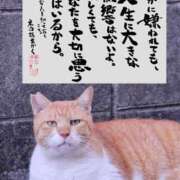 かに嫌われても、
人生に大きな
影響はないよ。
しくても、
なたを大切に思う
はいるから。